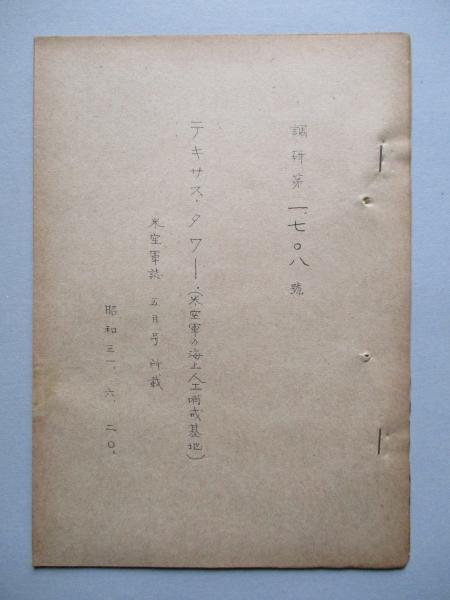 調研第一、七〇八號
テキサス・タワー・(米空軍の海上人工哨戒基地)
米空軍誌 五月号所載
昭和三一、六、二〇、